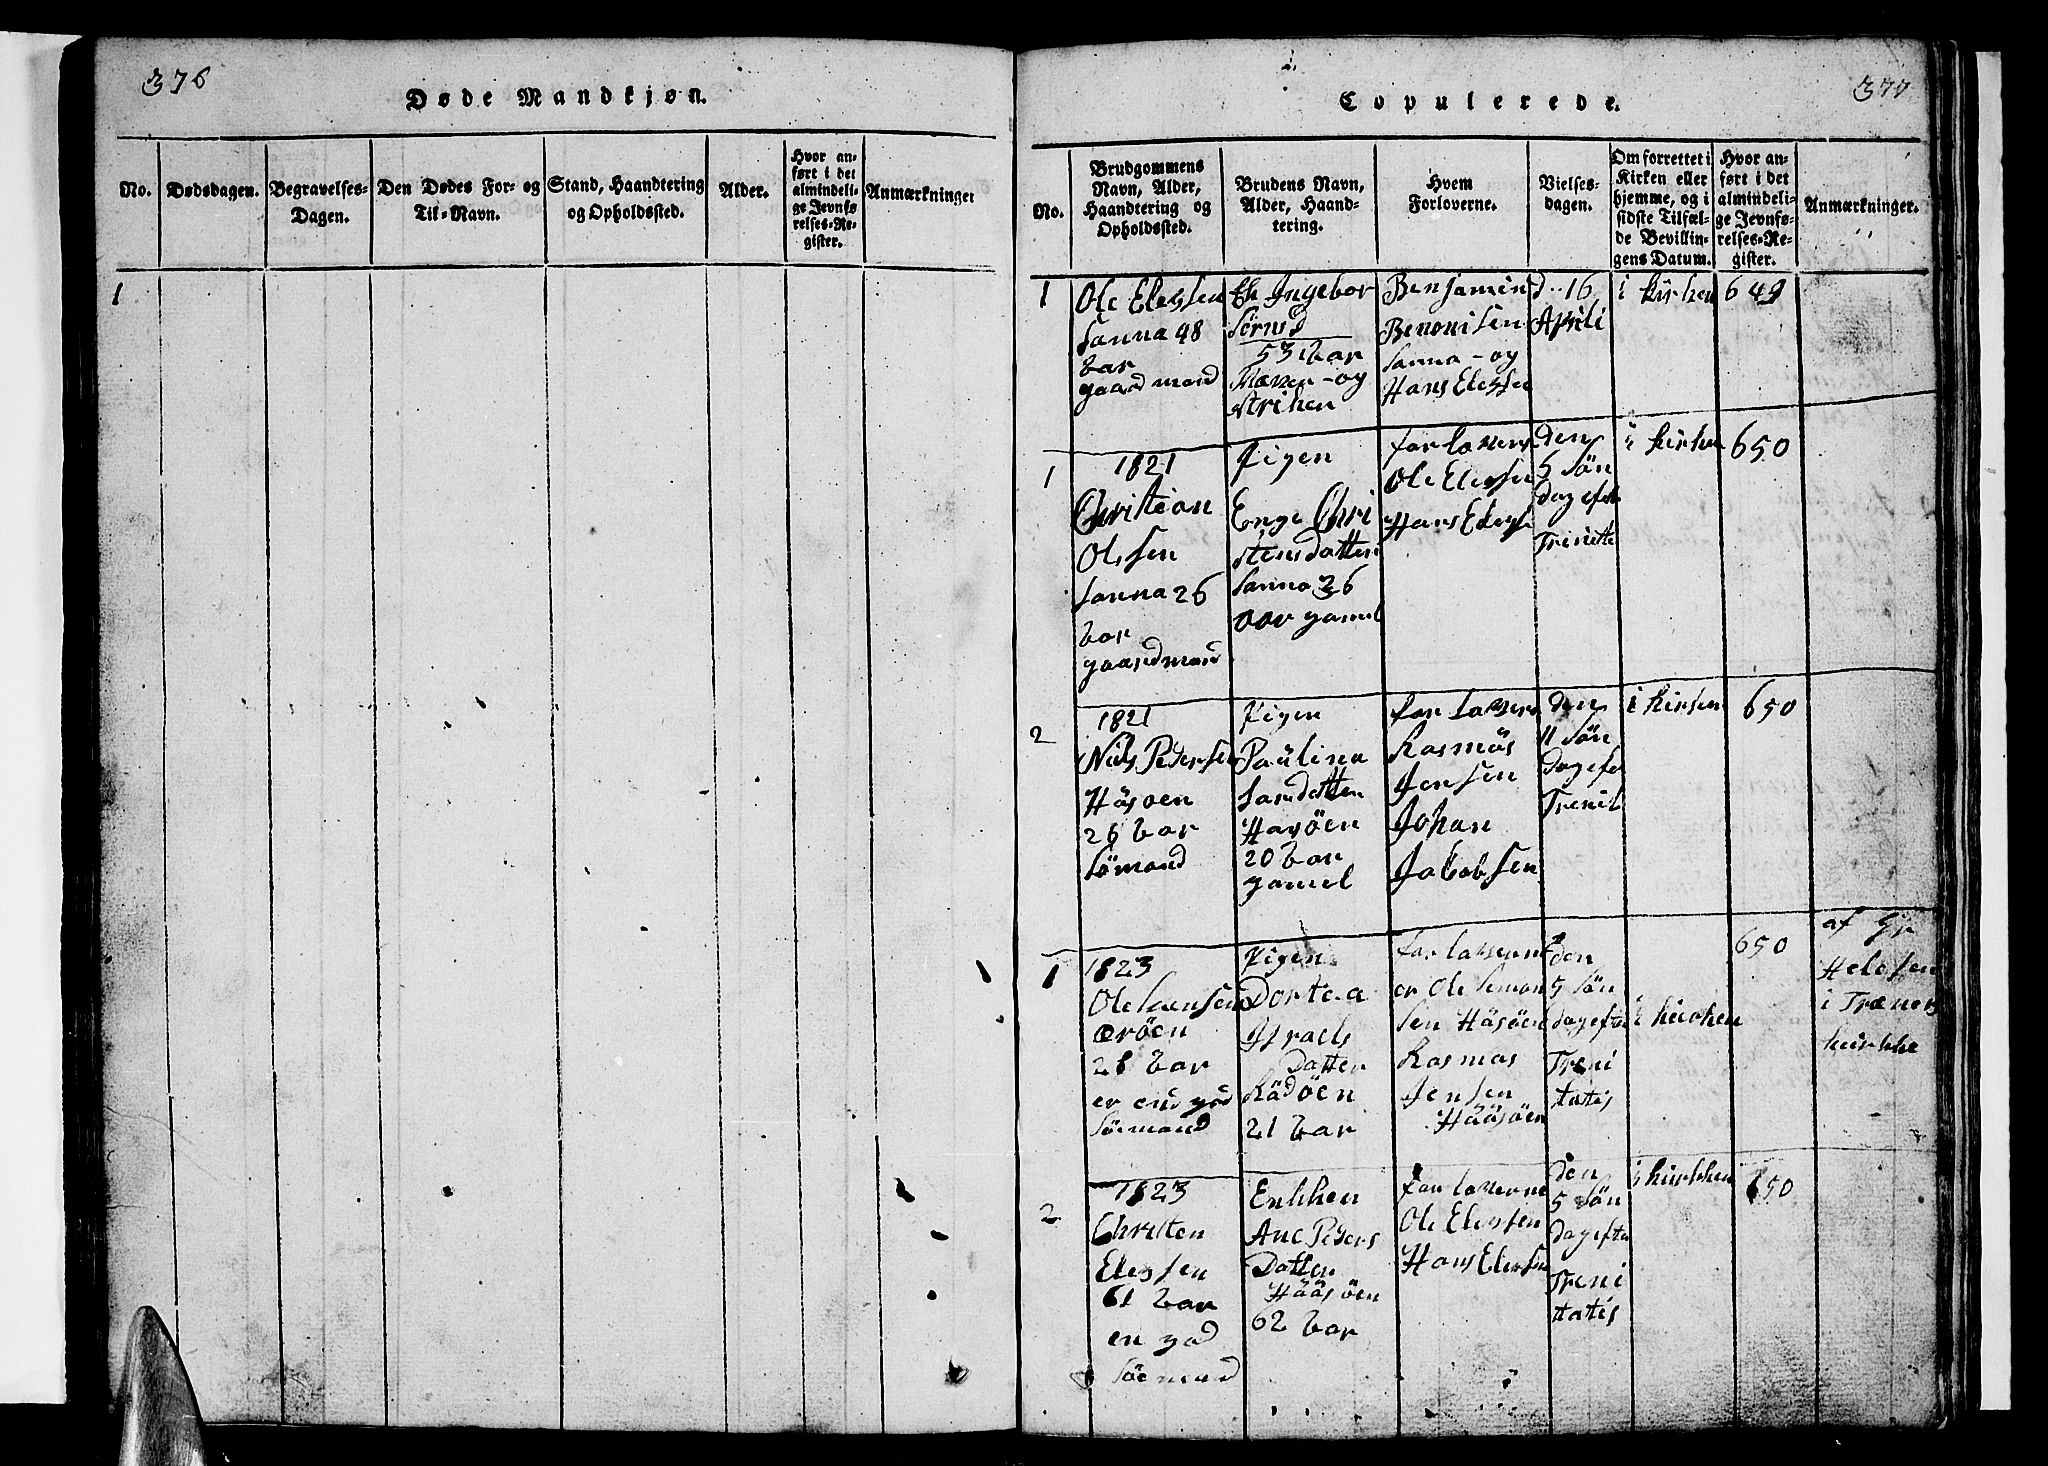 376
Døde Mandkjøn.
No.
Dødsdagen.
Begravelses-
Dagen.
Den Dødes For- og
Til-Navn.
Stand, Haandtering
og Opholdssted.
Alder.
Hvor an-
ført i det
almindeli-
ge Jevnfø-
relses-Re-
gister.
Anmærkninger
1
377
Copulerede.
No.
Brudgommens
Navn, Alder,
Haandtering og
Opholdssted.
Brudens Navn,
Alder, Haand-
tering.
Hvem
Forloverne.
Vielses-
dagen.
Om forrettet i
Kirken eller
hjemme, og i
sidste Tilfæl-
de Bevillin-
gens Datum.
Hvor an-
ført i det
almindeli-
ge Jevnfø-
relses-Re-
gister.
Anmærkninger.
1
Ole Elessen
Sanna 48
gaardmand
Ingebor
53
og
Benjamin
Benonisen
Sanna - og
Hans Elessen
d. 16
Aprili
i kirken
649
1
1821
Christian
Olssen
Sanna 26
gaardmand
Pigen
Enge Chri
stensdatter
Sanna 36
aar gamel
forlaaverne
Ole Elessen
Hans Elessen
den
5 Søn
dag efter
i kirken
650
2
1821
Nils Pedersen
Håsøen
26
Sømand
Pigen
Paulina
Håsøen
20
gamel
forlaaverne
Rasmus
Jensen
Johan
Jakobsen
den
11 Søn
dag efter
i kirken
650
1
1823
Ole
28
er en god
Sømand
Pigen
Dortea
Israels
Datter
Rådøen
21
er Ole Simon
sen Håsøen
Rasmus
Jensen
Håsøen
den
5 Søn
dag efter
Treni
tatis
i kirken
650
af Hr
i Trænens
kirkke
2
1823
Christen
Elessen
61
en god
Sømand
Enkken
Ane Peders
Datter
Håsøen
62
forlaaverne
Ole Elessen
Hans Elessen
den
5 Søn
dag efter
Treni
tatis
i kirkken
650